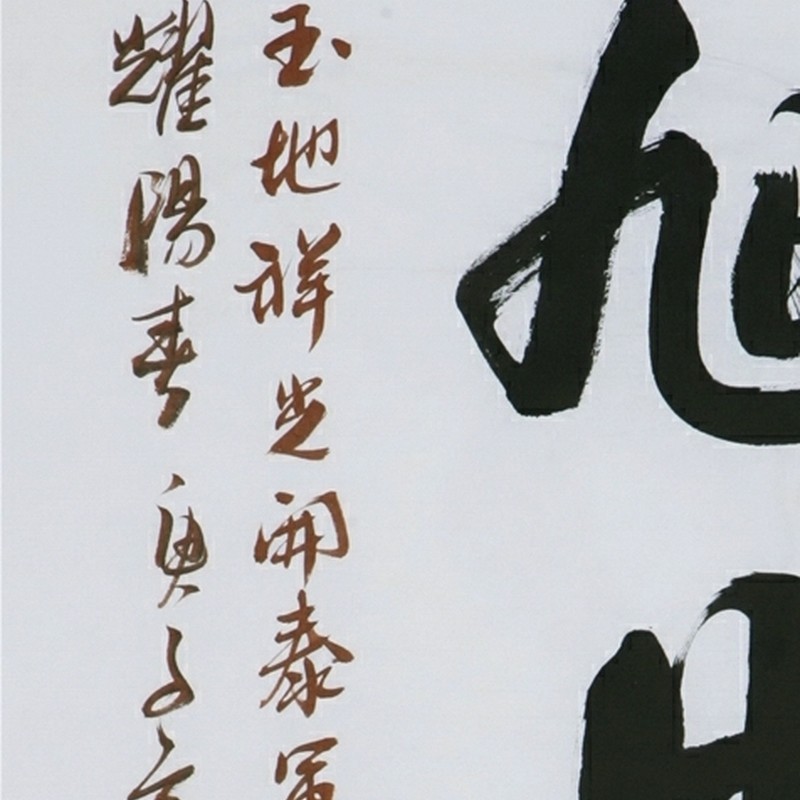 旭
玉地祥光開泰
耀陽春 庚子